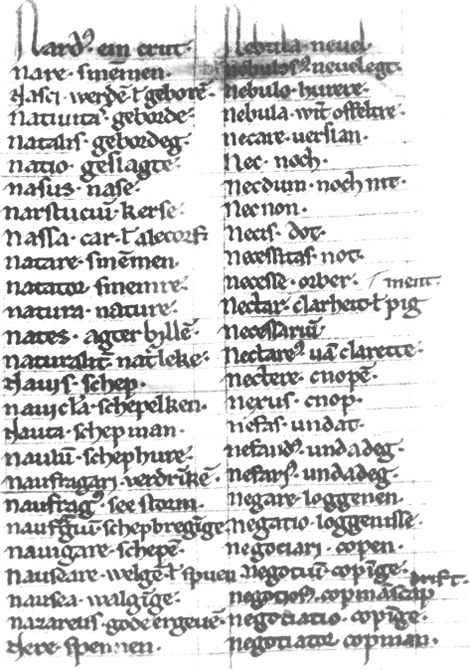 Nardꝰ ein crut·
Nare· smēmen·
Nasci· werdē ł geborē·
Natiuitas· geborde·
Natalis· gebordeg·
natio· geslagte·
nasus· nase·
narstuciū· kerse·
Nassa· car· ł alecorf·
natare· smēmen
natator· smemre·
natura· nature·
nates· agter billē·
naturalit̄· nat̄leke·
Nauis· schep·
nauicl̄a· schepelken·
Nauta· schepman·
naulū· schephure·
naufragari· verdrīkē·
naufragꝰ· see storm·
naufragiū· schepbregīge·
nauigare· schepē·
nauseare· welgē· ł spuen
nausea· walgīge·
nazareus· gode ergeuē·
Nere· spennen·
Nebula· neuel
nebulosꝰ· neuelegt·
nebulo· hurere·
nebula· wit̄ offeltre·
necare· verslan·
Nec· noch·
necdum· noch nit·
Nec non·
Necis· dot·
necessitas· not·
necesse· orber·
Nectar· clarheit ł pig ment·
necessariū
Nectareꝰ· uā clarette·
nectere· cnopē·
nexus· cnop·
nefas· undat·
nefandꝰ· undadeg·
nefariꝰ· undadeg·
negare· loggenen·
negatio· loggenisse·
negociari· copen·
Negotiū· copīge·
negotiosꝰ· copmāscap drift·
negotiatio· copīge·
negotiator· copman·